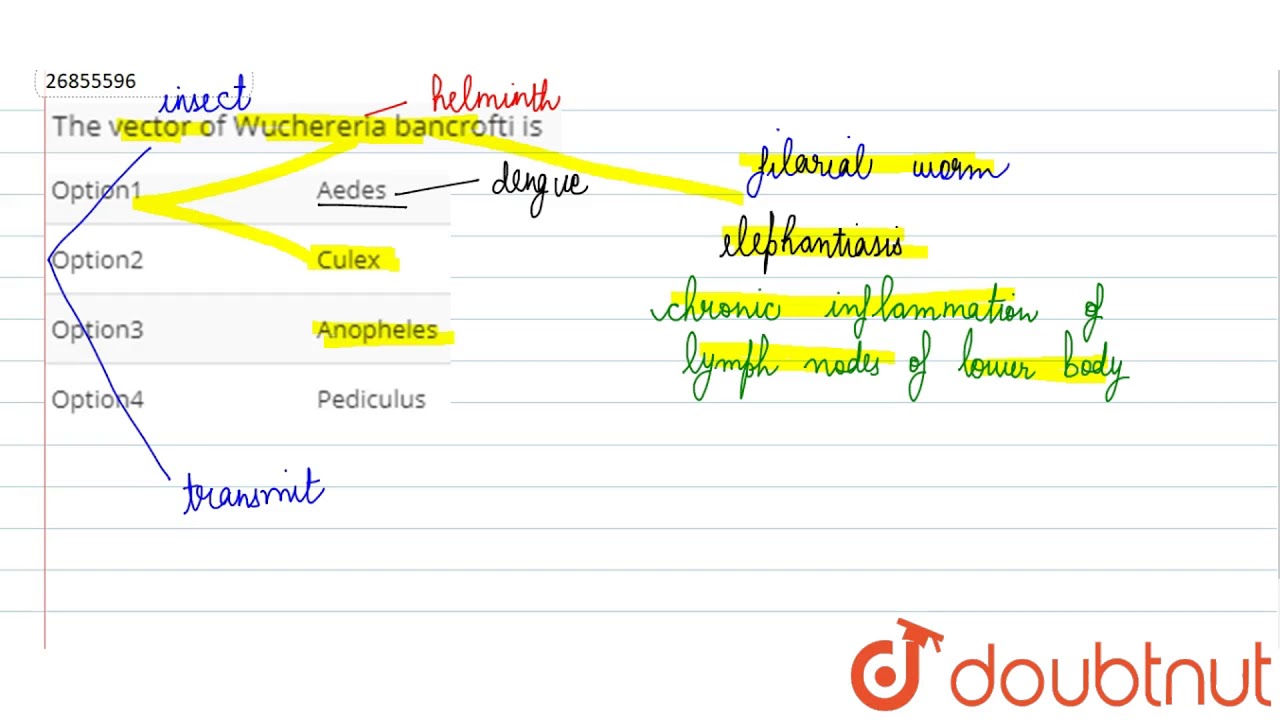 26855596
insect
helminth
The vector of Wuchereria bancrofti is
filarial worm
Option1 Aedes
dengue
elephantiasis
Option2 Culex
chronic inflammation of
Option3 Anopheles
lymph nodes of lower body
Option4 Pediculus
transmit
doubtnut